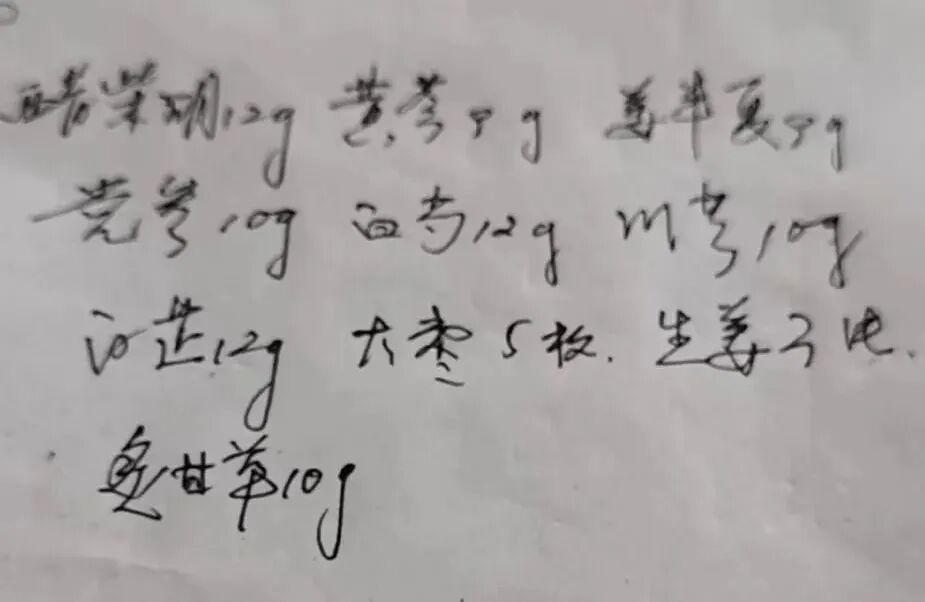 醋柴胡12g 黄芩9g 姜半夏9g
党参10g 白芍12g 川芎10g
白芷12g 大枣5枚. 生姜3片.
炙甘草10g